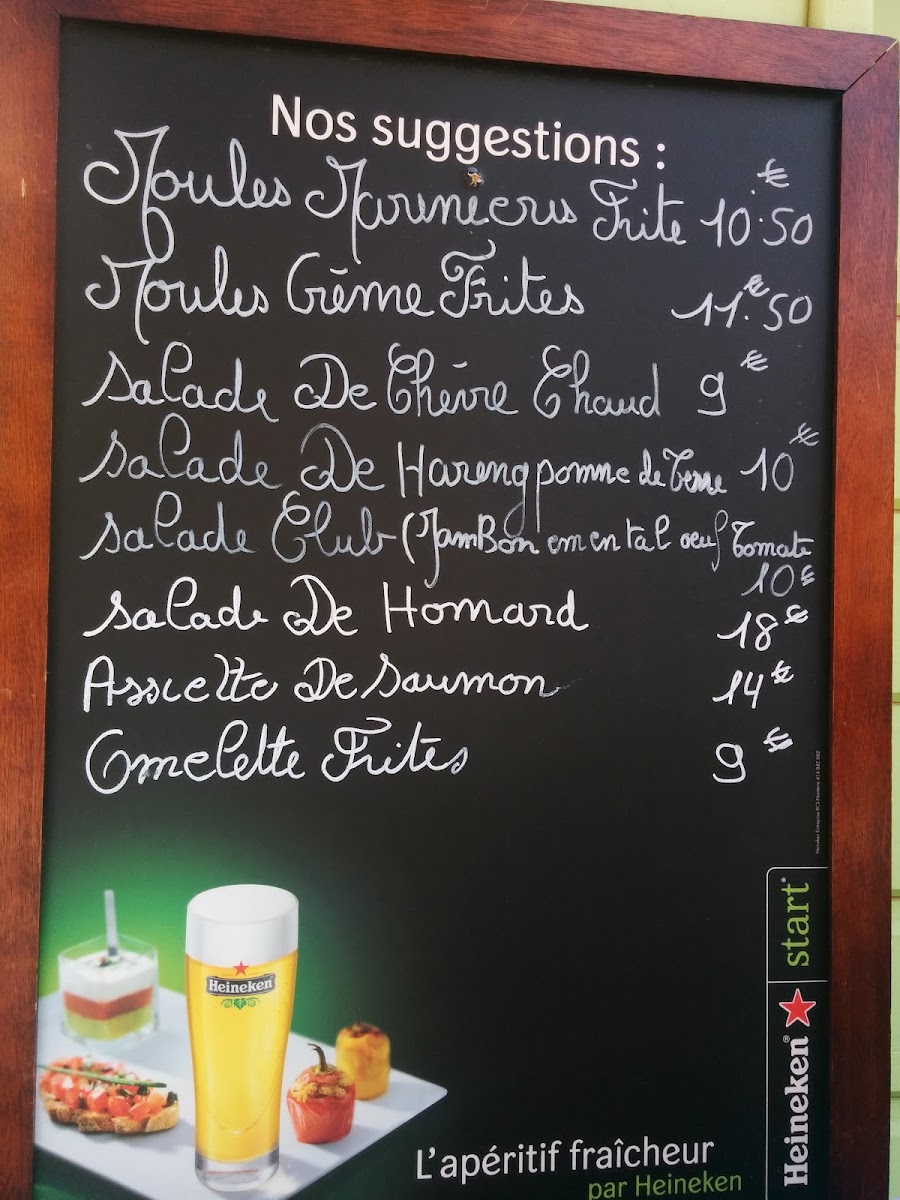 Nos suggestions :
Moules Marinieres Frite 10.50 €
Moules Crème Frites 11.50 €
Salade De Chèvre Chaud 9 €
Salade De Hareng pomme de Terre 10 €
Salade Club (Jambon emental oeuf Tomate
10 €
Salade De Homard 18 €
Assiette De Saumon 14 €
Omelette Frites 9 €
Heineken
L'apéritif fraîcheur
par Heineken
Heineken start*